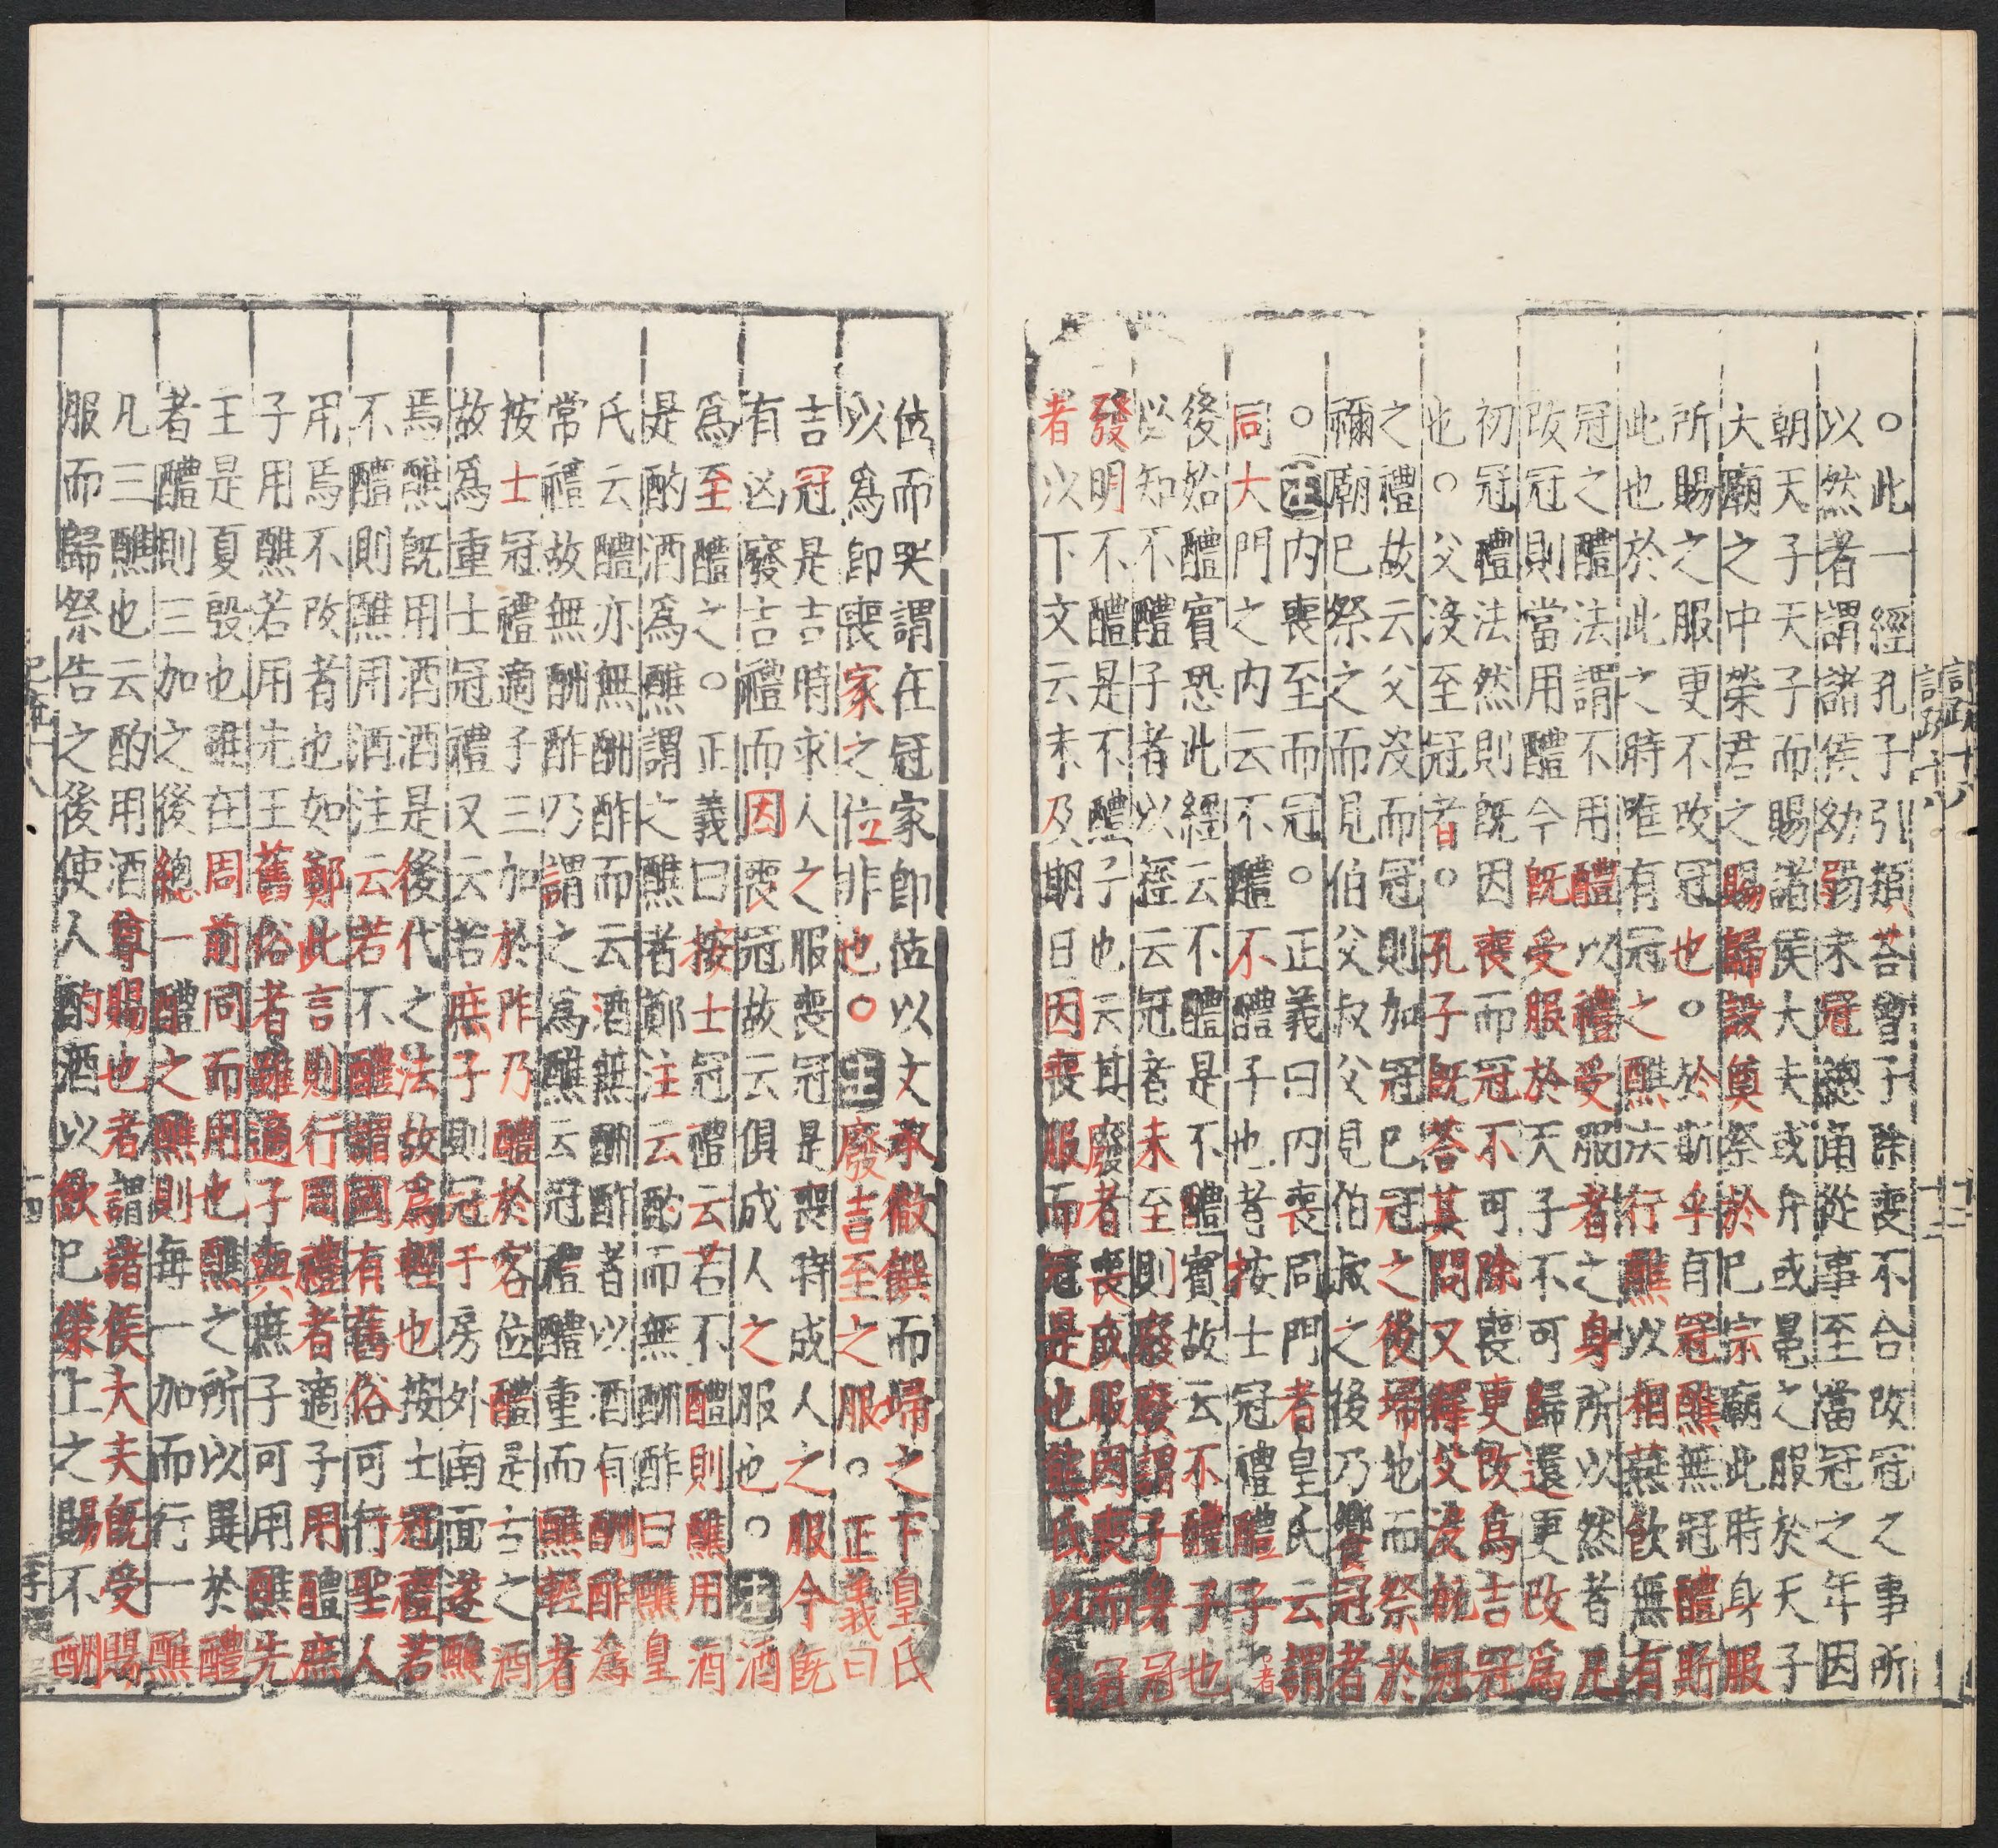 ○此一經孔子引類荅曾子除喪不合改冠之事所
以然者謂諸侯幼弱未冠總角從事至當冠之年因
朝天子天子而賜諸侯大夫或弁或冕之服於天子
大廟之中榮君之賜歸設奠祭於巳宗廟此時身服
所賜之服更不改冠也○於斯乎有冠醮無冠醴斯
此也於此之時唯有冠之醮法行醮以相燕飲無有
冠之醴法謂不用醴以禮受服者之身所以然者凡
改冠則當用醴今旣受服於天子不可歸還更改爲
初冠醴法然則旣因喪而冠不可除喪更改爲吉冠
也○父沒至冠者○孔子旣荅其問又釋父沒加冠
之禮故云父沒而冠則加冠巳冠之後埽地而祭於
禰廟巳祭之而見伯父叔父見伯叔之後乃饗冠者
○注内喪至而冠○正義曰内喪同門者皇氏云謂
同大門之内云不醴不醴子也者按士冠禮醴子者
後始醴賓恐此經云不醴是不醴賓故云不醴子也
必知不醴子者以經云冠者未至則廢廢謂子身冠
發明不醴是不醴子也云其廢者喪成服因喪而冠
者以下文云未及期日因喪服而冠是也熊氏以卽
位而哭謂在冠家卽位以文承徹饌而埽之下皇氏
以爲卽喪家之位非也○注廢吉至之服○正義曰
吉冠是吉時求人之服喪冠是喪時成人之服今旣
有凶廢吉禮而因喪冠故云俱成人之服也○注酒
爲至醴之○正義曰按士冠禮云若不醴則醮用酒
是酌酒爲醮謂之醮者鄭注云酌而無酬酢曰醮皇
氏云醴亦無酬酢而云酒無酬酢者以酒有酬酢爲
常禮故無酬酢乃謂之爲醮云冠禮醴重而醮輕者
按士冠禮適子三加於阼乃醴於客位醴是古之酒
故爲重士冠禮又云若庶子則冠于房外南面遂醮
焉醮旣用酒酒是後代之法故爲輕也按士冠禮若
不醴則醮用酒注云若不醴謂國有舊俗可行聖人
用焉不改者也如鄭此言則行周禮者適子用醴庶
子用醮若用先王舊俗者雖適子與庶子可用醮先
王是夏殷也雖在周前同而用也醮之所以異於醴
者醴則三加之後總一醴之醮則每一加而行一醮
凡三醮也云酌用酒尊賜也者謂諸侯大夫旣受賜
服而歸祭告之後使人酌酒以飲巳榮上之賜不酬